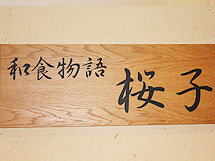 和食物語
桜子